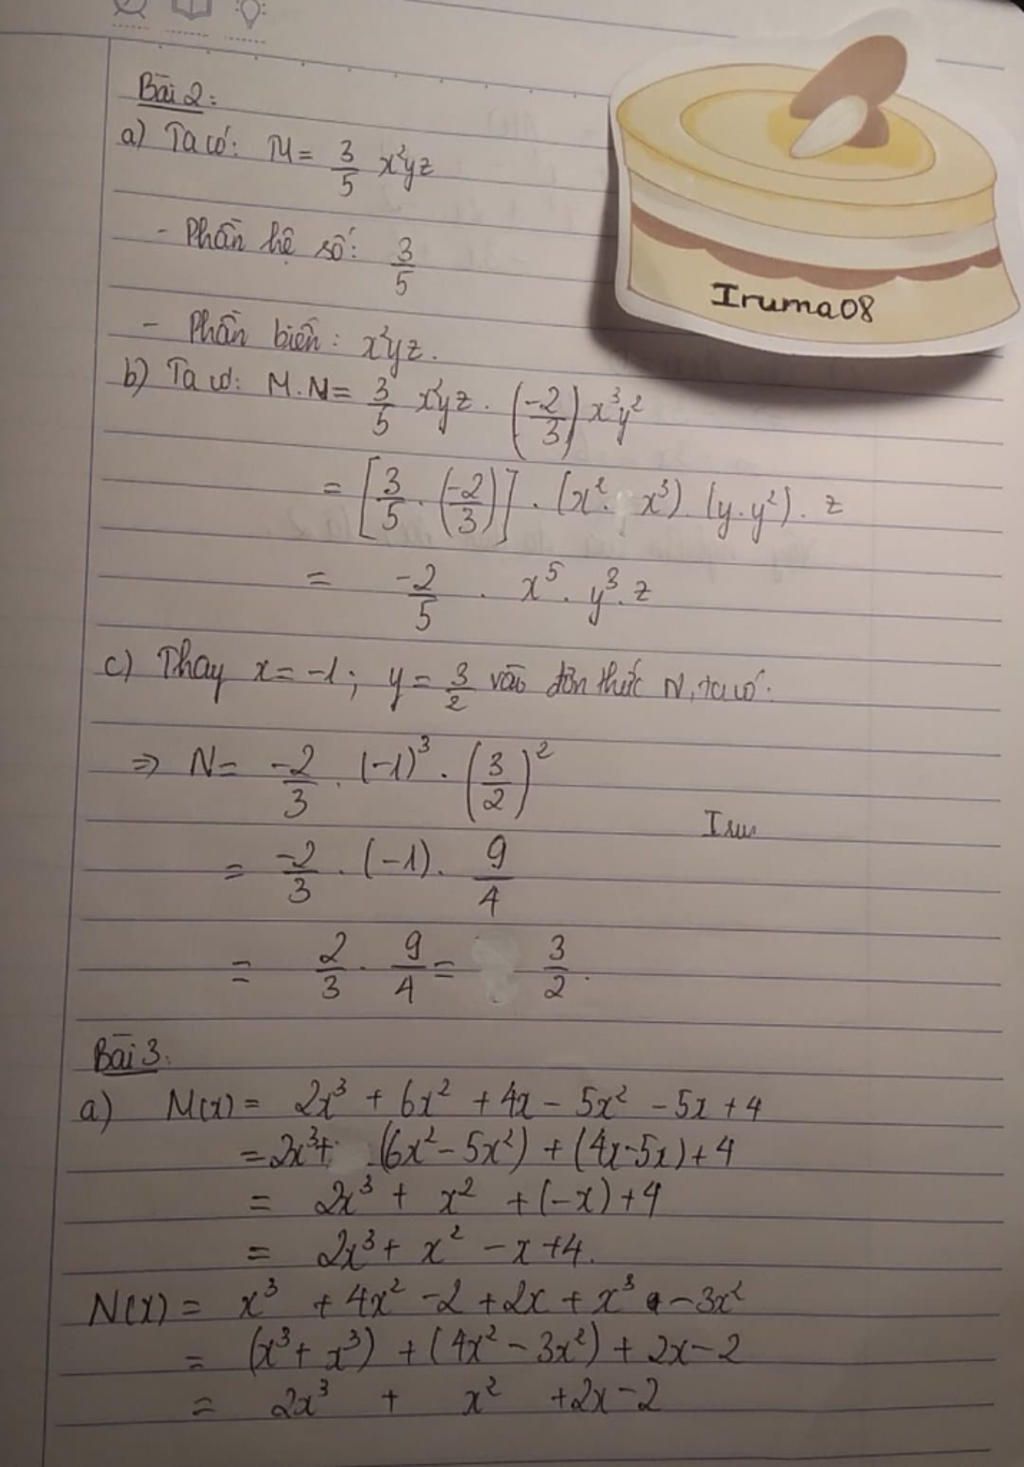 Bài 2:
a) Ta có: M = 3/5 x²yz
Iruma08
- Phần hệ số: 3/5
- Phần biến: x²yz.
b) Ta có: M.N = 3/5 x²yz . (-2/3) x³y²
= [3/5 . (-2/3)] . (x² . x³) . (y.y²) . z
= -2/5 . x⁵ . y³ . z
c) Thay x = -1; y = 3/2 vào đơn thức N, ta có:
=> N = -2/3 . (-1)³ . (3/2)²
= -2/3 . (-1) . 9/4
= 2/3 . 9/4 = 3/2 .
Bài 3:
a) M(x) = 2x³ + 6x² + 4x - 5x² - 5x + 4
= 2x³ + (6x² - 5x²) + (4x - 5x) + 4
= 2x³ + x² + (-x) + 4
= 2x³ + x² - x + 4.
N(x) = x³ + 4x² - 2 + 2x + x³ - 3x²
= (x³ + x³) + (4x² - 3x²) + 2x - 2
= 2x³ + x² + 2x - 2